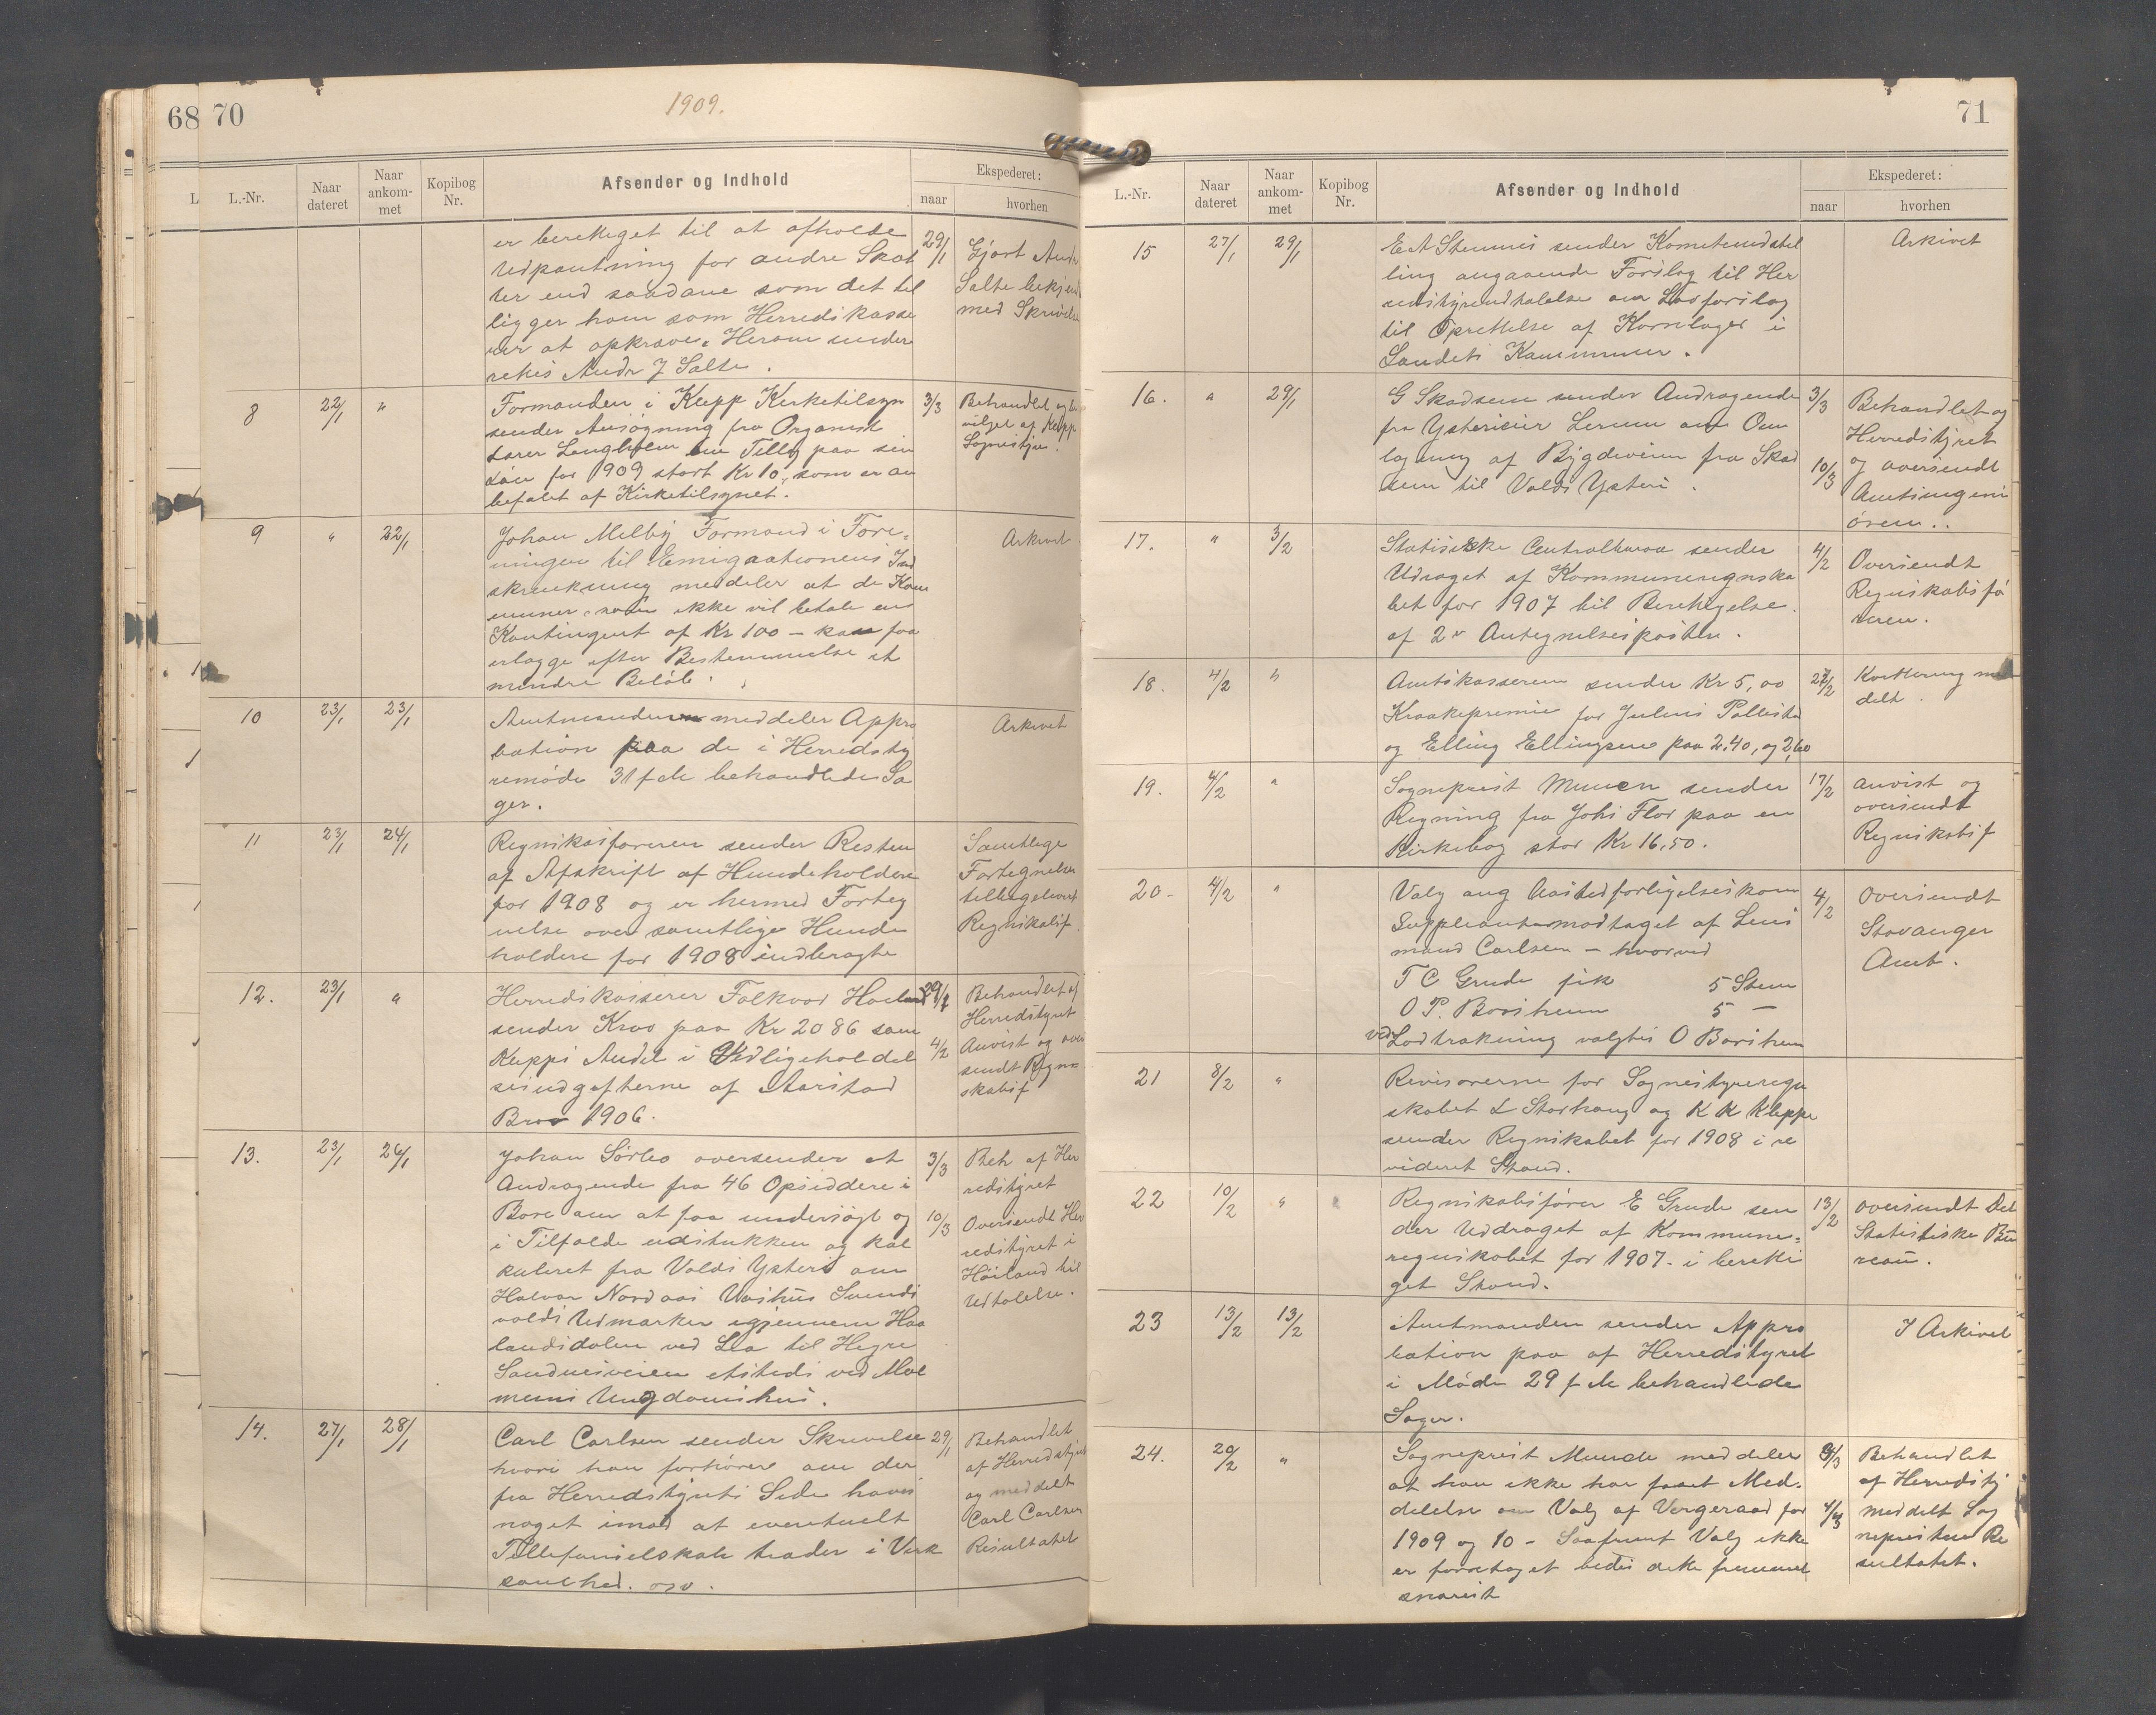 68 70
1909.
L.-Nr.
Naar dateret
Naar ankom- met
Kopibog Nr.
Afsender og Indhold
Ekspederet:
naar
hvorhen
er berettiget til at afholde
Udpantning for andre Skat
ter end saadane som det til
ligger ham som Herredskasse
rer at opkræve. Herom under
rettes Andr J Salte.
29/1
Gjort Andr
Salte bekjend
med Skrivelse
8 22/1 "
Formanden i Klepp Kirketilsyn
sender Ansøgning fra Organist
Lærer Langholm om Tillæg paa sin
Løn for 1909 stort Kr 10, som er an
befalet af Kirketilsynet.
3/3
Behandlet og be
vilget af Klepp
Sognestyre.
9 " 22/1
Johan Melby Formand i Fore-
ningen til Emigrationens Ind
skrenkning meddeler at de Kom
muner som ikke vil betale en
Kontingent af Kr 100 – kan faa
erlægge efter Bestemmelse et
mindre Beløb.
Arkivet
10 23/1 23/1
Amtmanden meddeler Appro
bation paa de i Herredsty
remøde 31 f de behandlede Sa
ger.
Arkivet
11 23/1 24/1
Regnskasføreren sender Resten
af Afskrift af Hundeholdere
for 1908 og er hermed Forteg
nelse over samtlige Hunde
holdere for 1908 indbragte
Samtlige
Fortegnelser
tilbageleveret
Regnskabsf.
12. 23/1 "
Herredskasserer Folkvor Haaland
sender Krav paa Kr 2086 som
Klepps Andel i Vedligeholdel
sesudgifterne af Aarstad
Bro 1906.
29/1
Behandlet af
Herredstyret
4/2
Anvist og over
sendt Regn
skabsf
13. 23/1 26/1
Johan Sørbo oversender et
Andragende fra 46 Opsiddere i
Bore om at faa undersøgt og
i Tilfælde udstukken og kal
kuleret fra Volds Ysteri om
Halvor Nordaas Vashus Sunds
volds Udmarker igjennem Haa
landsdalen ved Lea til Hegre
Sandnesveien etsteds ved Mal
mens Ungdomshus.
3/3
Beh af Her
redstyret
10/3
Oversendt Her
redstyret i
Høiland til
Udtalelse.
14. 27/1 28/1
Carl Carlsen sender Skrivelse
hvori han forhører om der
fra Herredstyrets Side haves
noget imod at eventuelt
Tillefonselskab træder i Virk
somhed. osv.
29/1
Behandlet
af Herredstyret
og meddelt
Carl Carlsen
Resultatet
71
L.-Nr.
Naar dateret
Naar ankom- met
Kopibog Nr.
Afsender og Indhold
Ekspederet:
naar
hvorhen
15 27/1 29/1
sender Komiteindstil
ling angaaende Forslag til Her
redsstyreudtalelse om Lovforslag
til Oprettelse af Kornlager i
Landets Kommuner.
Arkivet
16. " 29/1
G Skadsem sender Andragende
fra Ysterieier Lerum om Om
lægning af Bygdeveien fra Skad
sem til Volds Ysteri.
3/3
Behandlet og
Herredstyret
10/3
og oversendt
Amtsingeni
øren..
17. " 3/2
Statistiske Centralbureau sender
Udraget af Kommuneregnska
bet for 1907 til Berettigelse
af 2de Antegnelsesposter.
4/2
Oversendt
Regnskabsfø
reren.
18. 4/2 "
Amtskassereren sender Kr 5,00
Kraakepremie for Julius Pollestad
og Elling Ellingsen paa 2,40, og 2,60
22/2
Kvittering med
delt.
19. 4/2 "
Sogneprest Munch sender
Regning fra Johs Flor paa en
Kirkebog stor Kr 16,50.
17/2
anvist og
oversendt
Regnskabsf
20- 4/2 "
Valg ang Aastedforligelseskom
Suppleanter modtaget af Lens
mand Carlsen – hvorved
T C Grude fik 5 Stem
O P. Borsheim 5 –
ved Lodtrækning valgtes O Borsheim
4/2
oversendt
Stavanger
Amt.
21 8/2 "
Revisorerne for Sognestyreregn
skabet L Storhaug og K K Kleppe
sender Regnskabet for 1908 i re
videret Stand.
22 10/2 "
Regnskabsfører E Grude sen
der Uddraget af Kommune-
regnskabet for 1907. i beretti
get Stand.
13/2
oversendt Det
Statistiske Bu
reau.
23 13/2 13/2
Amtmanden sender Appro
bation paa af Herredstyret
i Møde 29 f de behandlede
Sager.
I Arkivet
24. 20/2 "
Sogneprest Munch meddeler
at han ikke har faaet Med-
delelse om Valg af Vergeraad for
1909 og 10 – Saafremt Valg ikke
er foretaget bedes dette fremmet
snarest
3/3
Behandlet
af Herredsty
4/3
meddelt Sog
nepresten Re
sultatet.